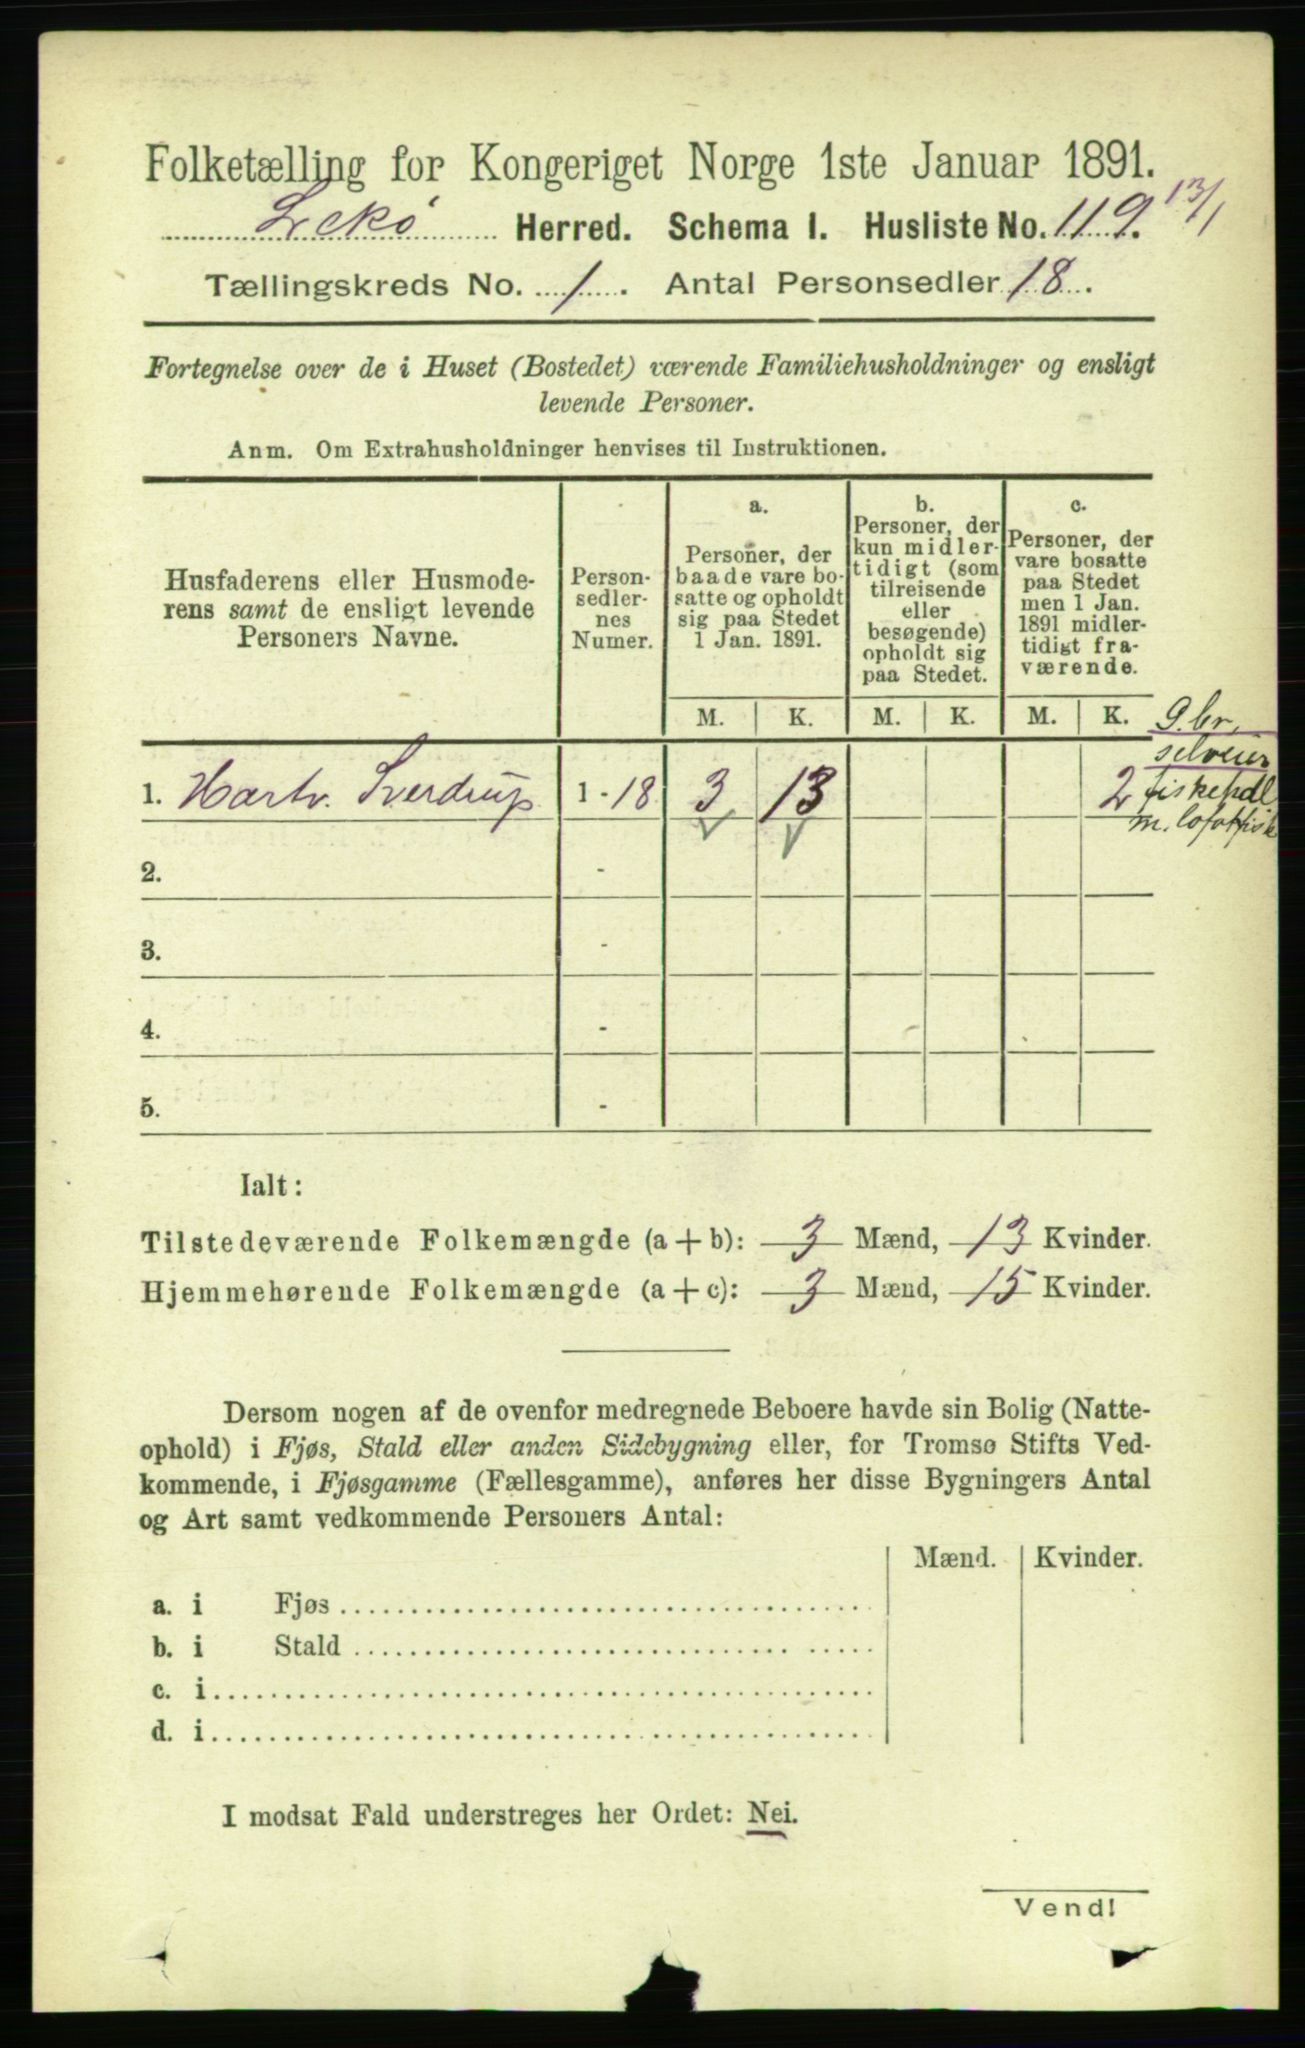 Folketælling for Kongeriget Norge 1ste Januar 1891.
Lekø Herred. Schema I. Husliste No. 119. 13/1
Tællingskreds No. 1. Antal Personsedler 18.
Fortegnelse over de i Huset (Bostedet) værende Familiehusholdninger og ensligt
levende Personer.
Anm. Om Extrahusholdninger henvises til Instruktionen.
Husfaderens eller Husmode-
rens samt de ensligt levende
Personers Navne.
Person-
sedler-
nes
Numer.
a.
Personer, der
baade vare bo-
satte og opholdt
sig paa Stedet
1 Jan. 1891.
b.
Personer, der
kun midler-
tidigt (som
tilreisende
eller
besøgende)
opholdt sig
paa Stedet.
c.
Personer, der
vare bosatte
paa Stedet
men 1 Jan.
1891 midler-
tidigt fra-
værende.
M. K. M. K. M. K.
G.br.
selveier
fiskehdl
m. lofotfisk
1. Hartv. Sverdrup 1 - 18 3 13 2
2. -
3. -
4. -
5. -
Ialt:
Tilstedeværende Folkemængde (a + b): 3 Mænd, 13 Kvinder.
Hjemmehørende Folkemængde (a + c): 3 Mænd, 15 Kvinder.
Dersom nogen af de ovenfor medregnede Beboere havde sin Bolig (Natte-
ophold) i Fjøs, Stald eller anden Sidebygning eller, for Tromsø Stifts Ved-
kommende, i Fjøsgamme (Fællesgamme), anføres her disse Bygningers Antal
og Art samt vedkommende Personers Antal:
Mænd. Kvinder.
a. i Fjøs
b. i Stald
c. i
d. i
I modsat Fald understreges her Ordet: Nei.
Vend!